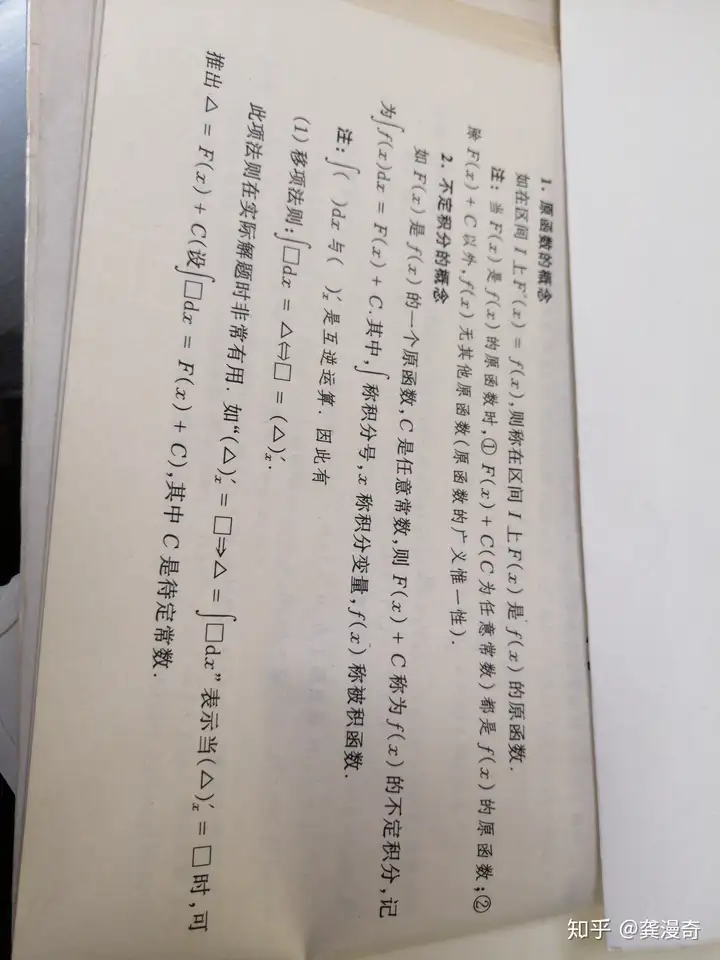 1. 原函数的概念
如在区间 I 上F′(x) = f(x),则称在区间 I 上F(x) 是 f(x) 的原函数.
注: 当 F(x) 是 f(x) 的原函数时,① F(x) + C(C 为任意常数) 都是 f(x) 的原函数;②
除 F(x) + C 以外,f(x) 无其他原函数(原函数的广义惟一性).
2. 不定积分的概念
如 F(x) 是 f(x) 的一个原函数,C 是任意常数,则 F(x) + C 称为 f(x) 的不定积分,记
为∫f(x)dx = F(x) + C.其中,∫称积分号,x 称积分变量,f(x) 称被积函数.
注: ∫( )dx 与( )′ₓ 是互逆运算. 因此有
(1) 移项法则:∫□dx = △⇔□ = (△)′ₓ.
此项法则在实际解题时非常有用. 如“(△)′ₓ = □⇒△ = ∫□dx”表示当(△)′ₓ = □时,可
推出 △ = F(x) + C(设∫□dx = F(x) + C),其中 C 是待定常数.
知乎 @龚漫奇